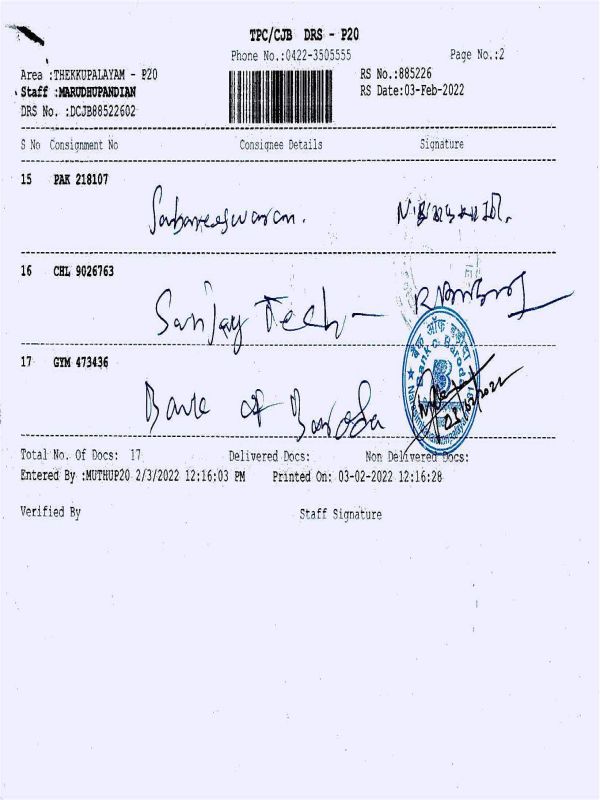 TPC/CJB DRS - P20
Phone No.:0422-3505555 Page No.:2
Area :THEKKUPALAYAM - P20 RS No.:885226
Staff :MARUDHUPANDIAN RS Date:03-Feb-2022
DRS No. :DCJB88522602
S No Consignment No Consignee Details Signature
15 PAK 218107
Sabareeswaran.
16 CHL 9026763
Sanjay Tech -
बैंक ऑफ बड़ौदा
Bank of Baroda
17 GYM 473436
Bank of Baroda
Total No. Of Docs: 17 Delivered Docs: Non Delivered Docs:
Entered By :MUTHUP20 2/3/2022 12:16:03 PM Printed On: 03-02-2022 12:16:28
Verified By Staff Signature